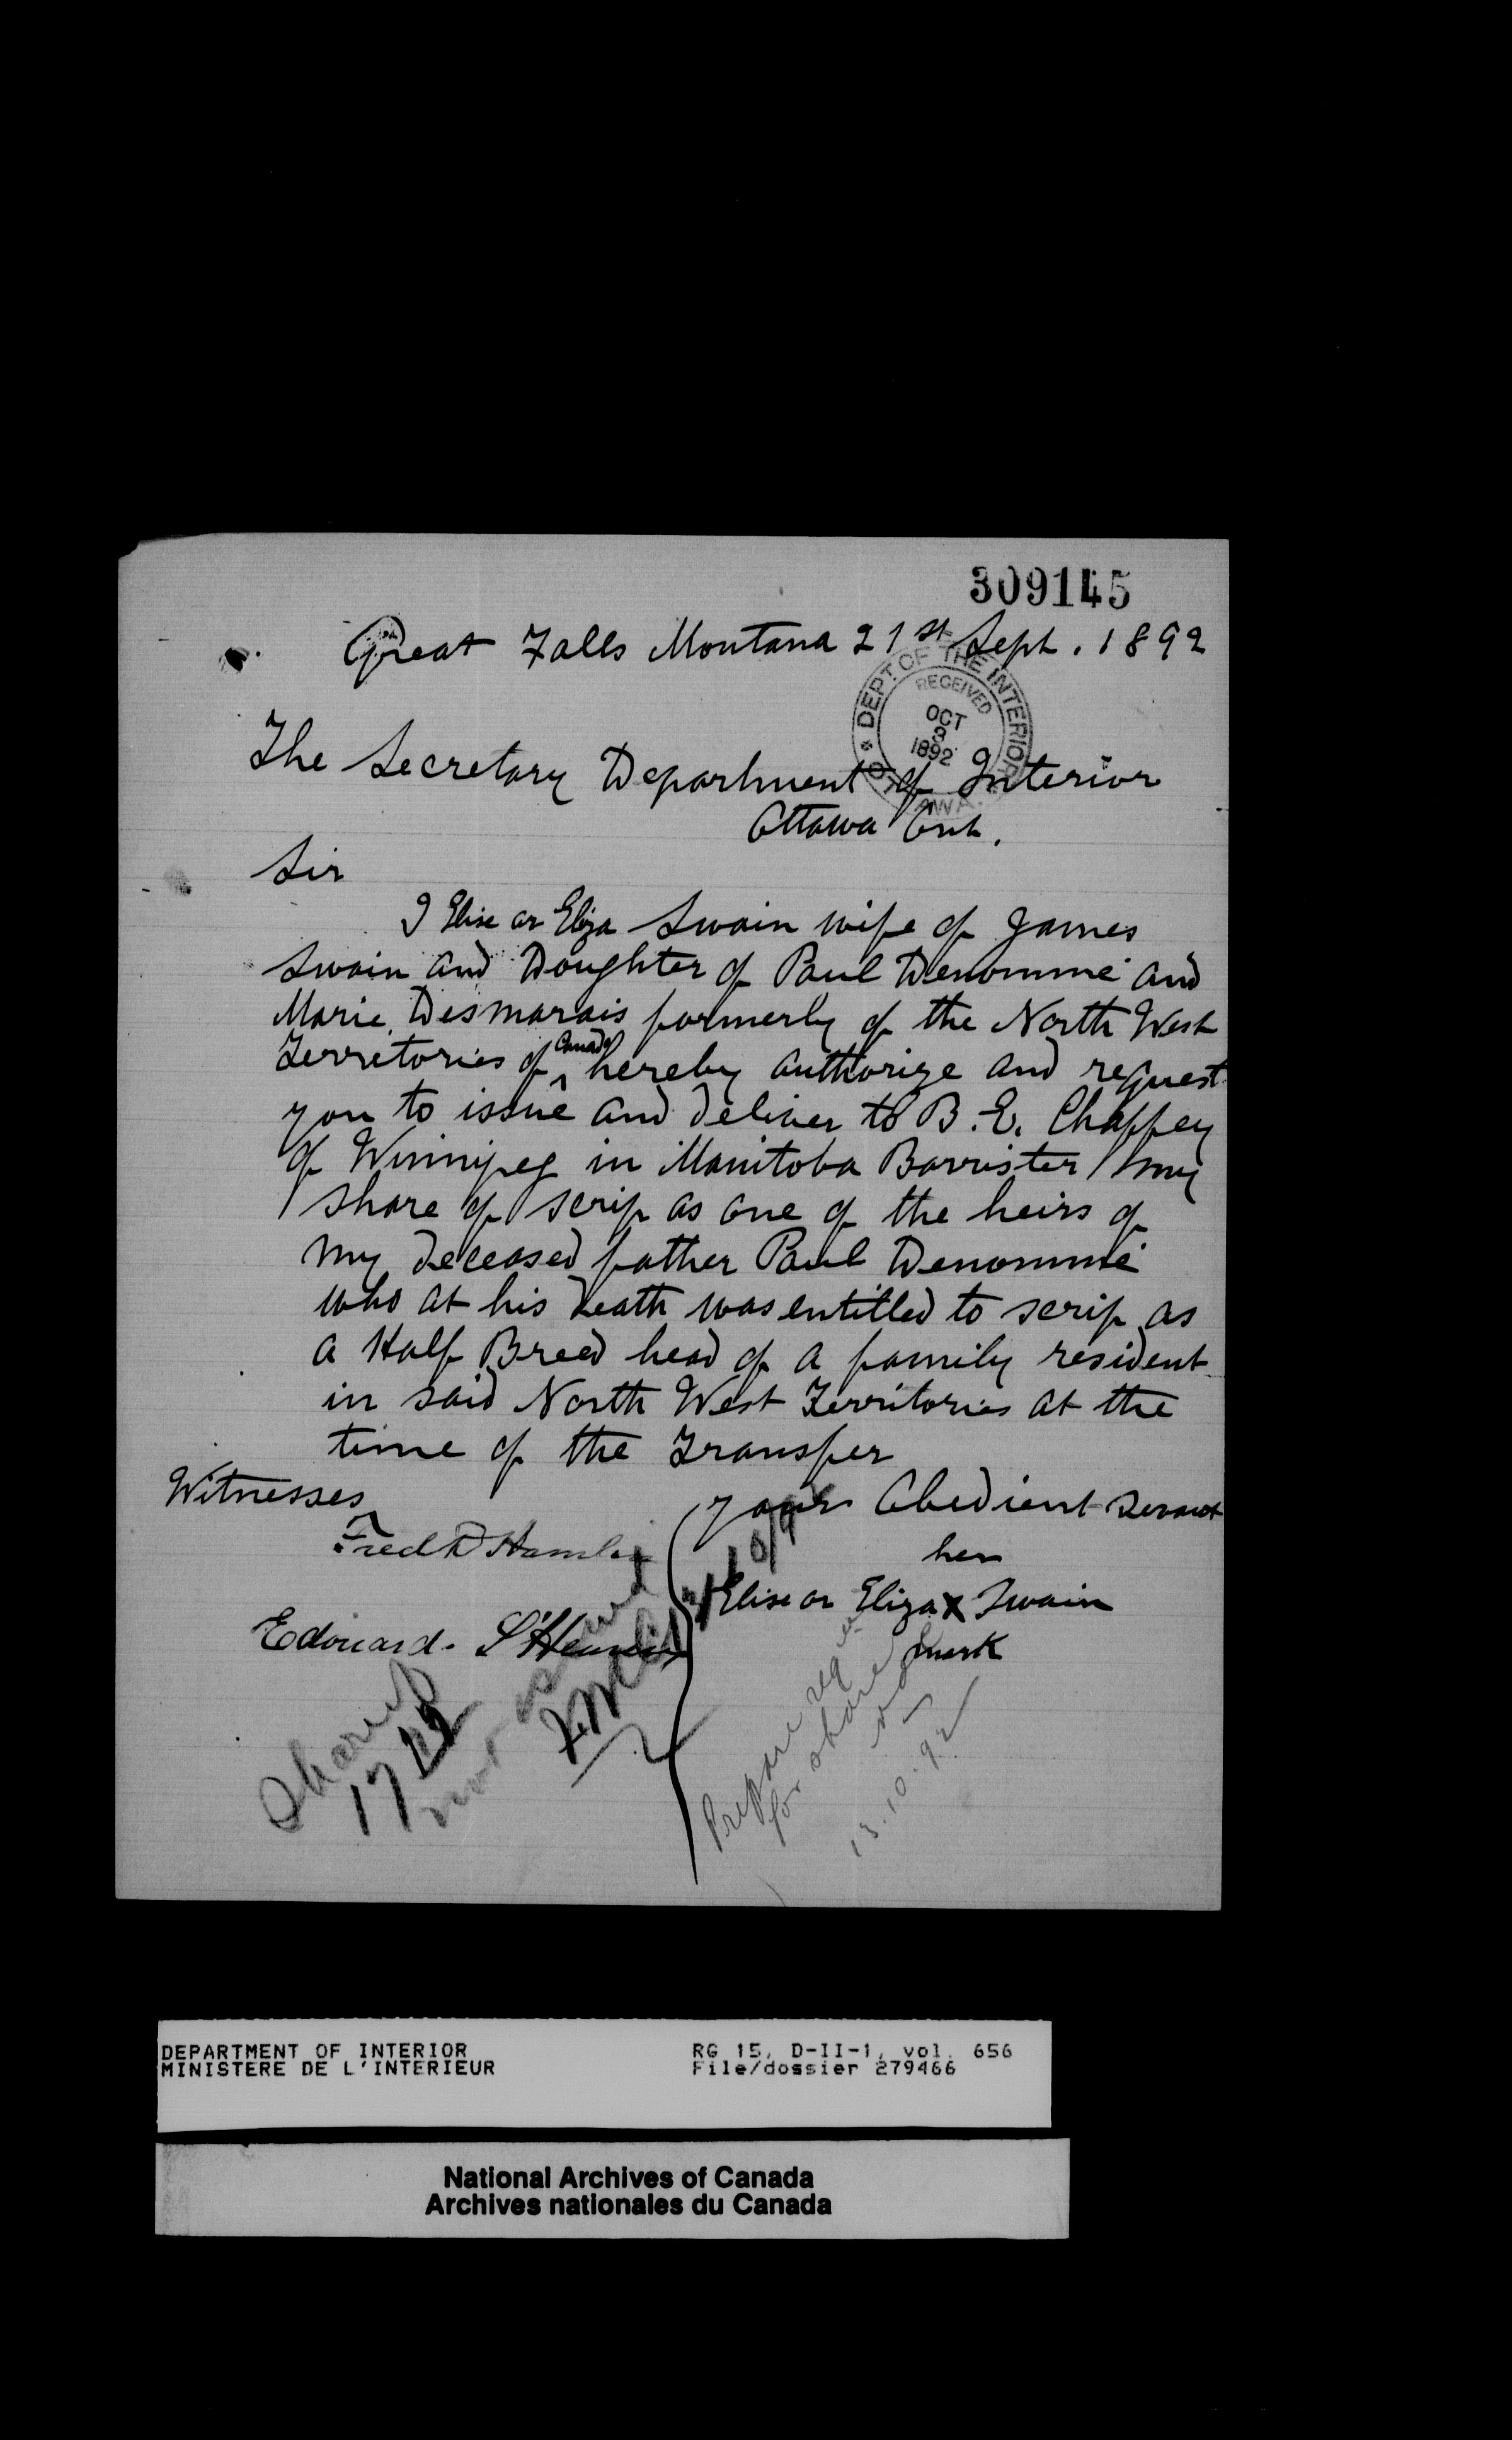 309145
Great Falls Montana 21st Sept. 1892
DEPT. OF THE INTERIOR
RECEIVED
OCT
1892
OTTAWA.
The Secretary Department of Interior
Ottawa Ont.
Sir
I Elise or Eliza Swain wife of James
Swain and Doughter of Paul Denommé and
Marie Desmarais formerly of the North West
Terretories of Canada hereby authorize and request
you to issue and deliver to B. E. Chaffey
of Winnipeg in Manitoba Barrister my
share of scrip as one of the heirs of
my deceased father Paul Denommé
who at his death was entitled to scrip as
a Half Breed head of a family resident
in said North West Territories at the
time of the Transfer
Witnesses
your Obedient Servant
Fred
her
Elise or Eliza X Swain
mark
Edouard
Share
17
not
Prepare
for share
13.10.92
DEPARTMENT OF INTERIOR
MINISTERE DE L'INTERIEUR
RG 15, D-II-1, vol. 656
File/dossier 279466
National Archives of Canada
Archives nationales du Canada